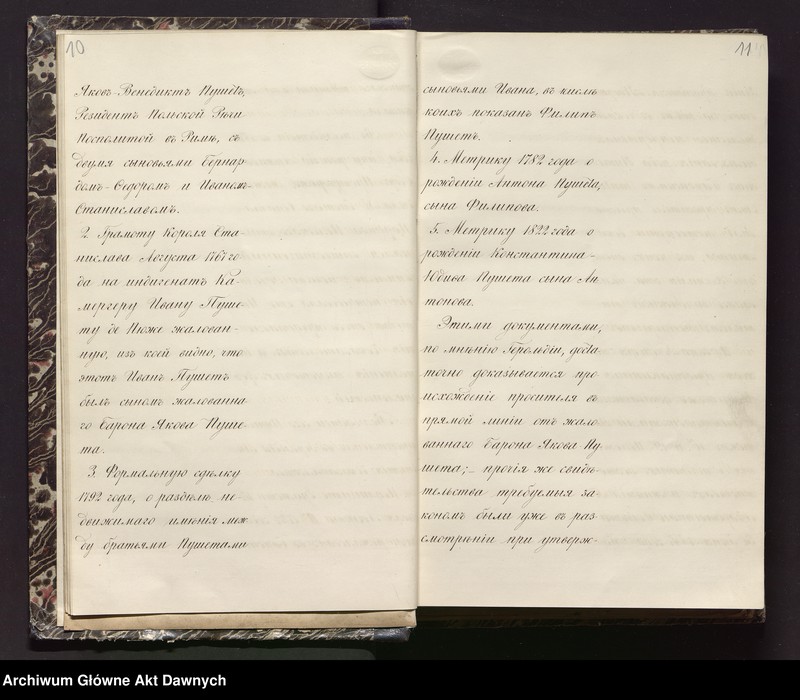 10
Яковъ-Венедиктъ Пушетъ,
Резидентъ Польской Рѣчи
Посполитой въ Римѣ, съ
двумя сыновьями Бернар-
домъ-Ѳедоромъ и Иваномъ-
Станиславомъ.
2. Грамоту Короля Ста-
нислава Августа 1767 го-
да на индигенатъ Ка-
мергеру Ивану Пуше-
ту де Пюже жалован-
ную, изъ коей видно, что
этотъ Иванъ Пушетъ
былъ сыномъ жалованна-
го барона Якова Пуше-
та.
3. Формальную сдѣлку
1792 года, о раздѣлѣ не-
движимаго имѣнія меж-
ду братьями Пушетами
11
сыновьями Ивана, въ числѣ
коихъ показанъ Филипъ
Пушетъ.
4. Метрику 1782 года о
рожденіи Антона Пушета,
сына Филипова.
5. Метрику 1822 года о
рожденіи Константина-
Пушета сына Ан
тонова.
Этими документами,
по мнѣнію Герольдіи, доста
точно доказывается про
исхожденіе просителя въ
прямой линіи отъ жало
ваннаго барона Якова Пу
шета; - прочія же свидѣ-
тельства требуемыя за-
кономъ были уже въ раз-
смотрѣніи при утверж-
Archiwum Główne Akt Dawnych